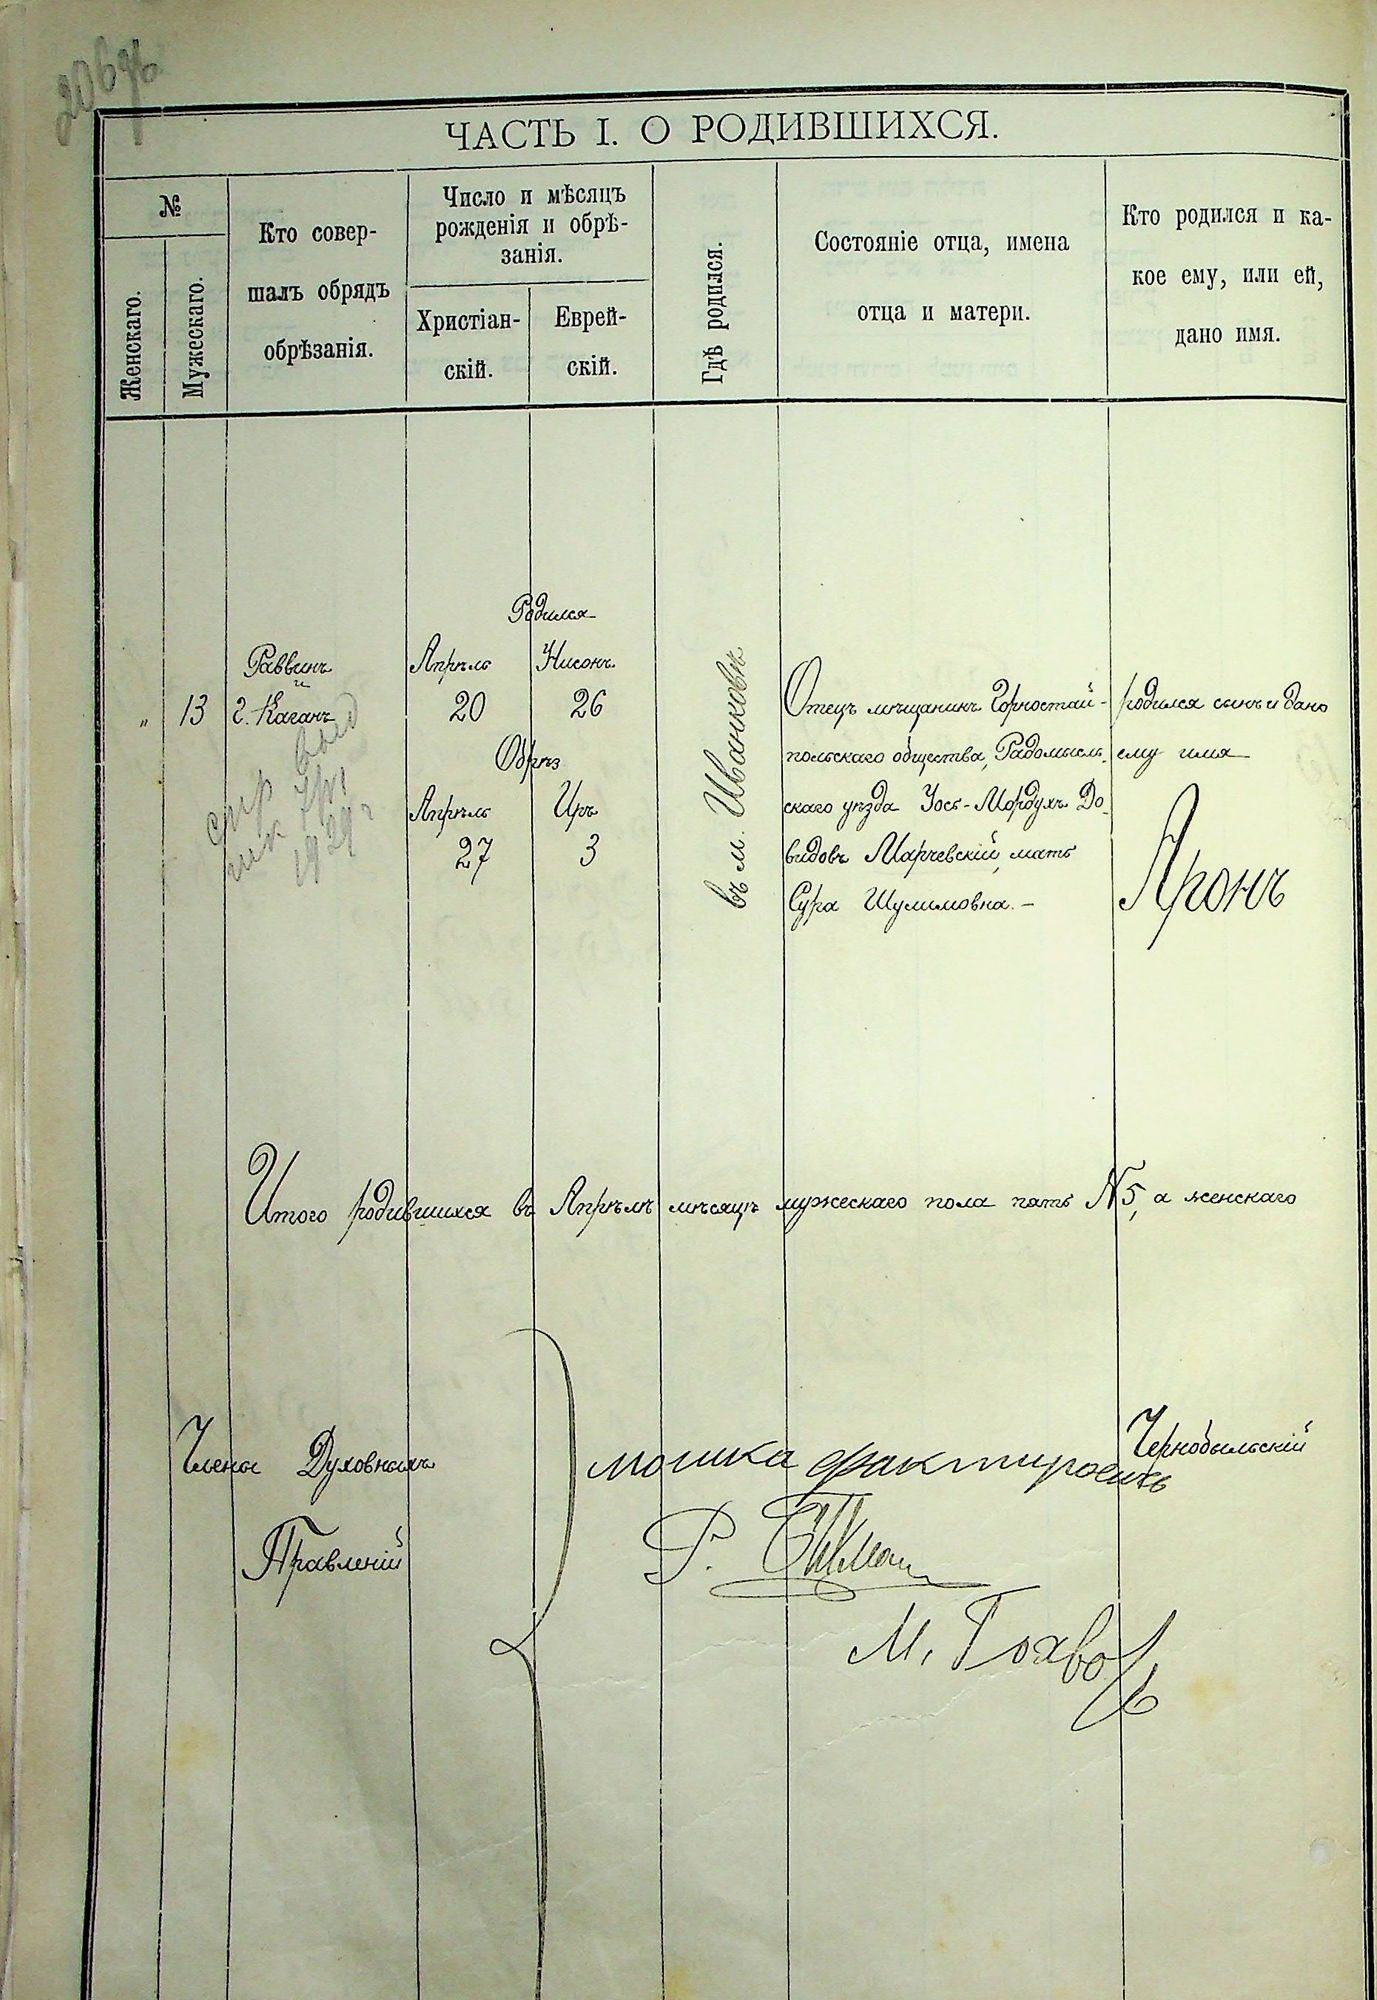 206
ЧАСТЬ I. О РОДИВШИХСЯ.
№
Женскаго.
Мужескаго.
Кто совер-
шалъ обрядъ
обрѣзанія.
Число и мѣсяцъ
рожденія и обрѣ-
занія.
Христіан-
скій.
Еврей-
скій.
Гдѣ родился.
Состояніе отца, имена
отца и матери.
Кто родился и ка-
кое ему, или ей,
дано имя.
„
13
Раввинъ
и
г. Каганъ
Родился
Апрѣль
Нисонъ
20
26
Обрѣз
Апрѣль
Иръ
27
3
въ м. Иванковѣ
Отецъ мѣщанинъ Горностай-
польскаго общества, Радомысль-
скаго уѣзда Іось-Мордухъ До-
видовъ Марчевскій, мать
Сура Шулимовна. —
родился сынъ и дано
ему имя
Аронъ
1929 г
Итого родившихся въ Апрѣлѣ мѣсяцѣ мужескаго пола пять №5, а женскаго
Члены Духовныхъ
Правленій
Чернобыльскій
мошка
Р.
М.